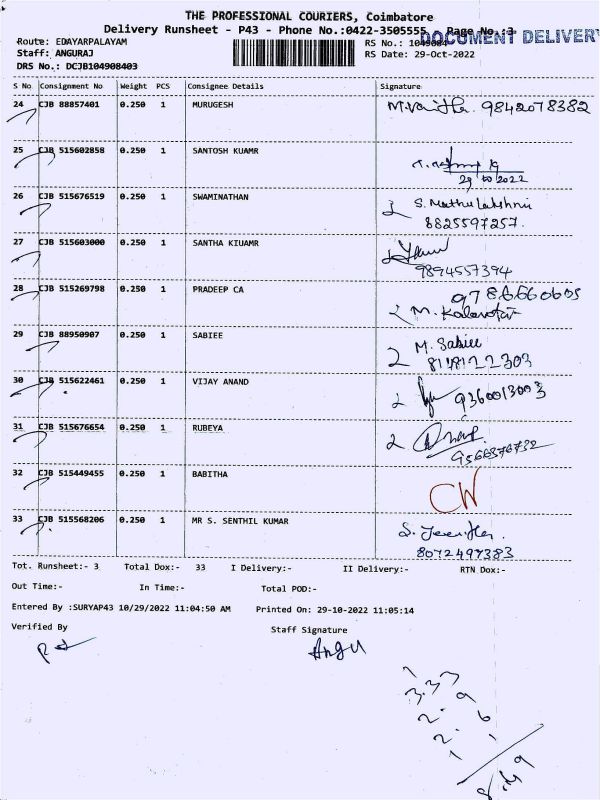 THE PROFESSIONAL COURIERS, Coimbatore
Delivery Runsheet - P43 - Phone No.:0422-3505555 Page No.:3
DOCUMENT DELIVERY
Route: EDAYARPALAYAM
RS No.: 1049084
Staff: ANGURAJ
RS Date: 29-Oct-2022
DRS No.: DCJB104908403
S No Consignment No Weight PCS Consignee Details Signature
24 CJB 88857401 0.250 1 MURUGESH 9842078382
25 CJB 515602858 0.250 1 SANTOSH KUAMR
29 10 2022
26 CJB 515676519 0.250 1 SWAMINATHAN S. Muthulakshmi
8825597257.
27 CJB 515603000 0.250 1 SANTHA KIUAMR
9894557394
28 CJB 515269798 0.250 1 PRADEEP CA
M.
29 CJB 88950907 0.250 1 SABIEE M. Sabiee
8148122303
30 CJB 515622461 0.250 1 VIJAY ANAND 9360013003
31 CJB 515676654 0.250 1 RUBEYA
9566376732
32 CJB 515449455 0.250 1 BABITHA CW
33 CJB 515568206 0.250 1 MR S. SENTHIL KUMAR S.
8072497383
Tot. Runsheet:- 3 Total Dox:- 33 I Delivery:- II Delivery:- RTN Dox:-
Out Time:- In Time:- Total POD:-
Entered By :SURYAP43 10/29/2022 11:04:50 AM Printed On: 29-10-2022 11:05:14
Verified By Staff Signature
Angu